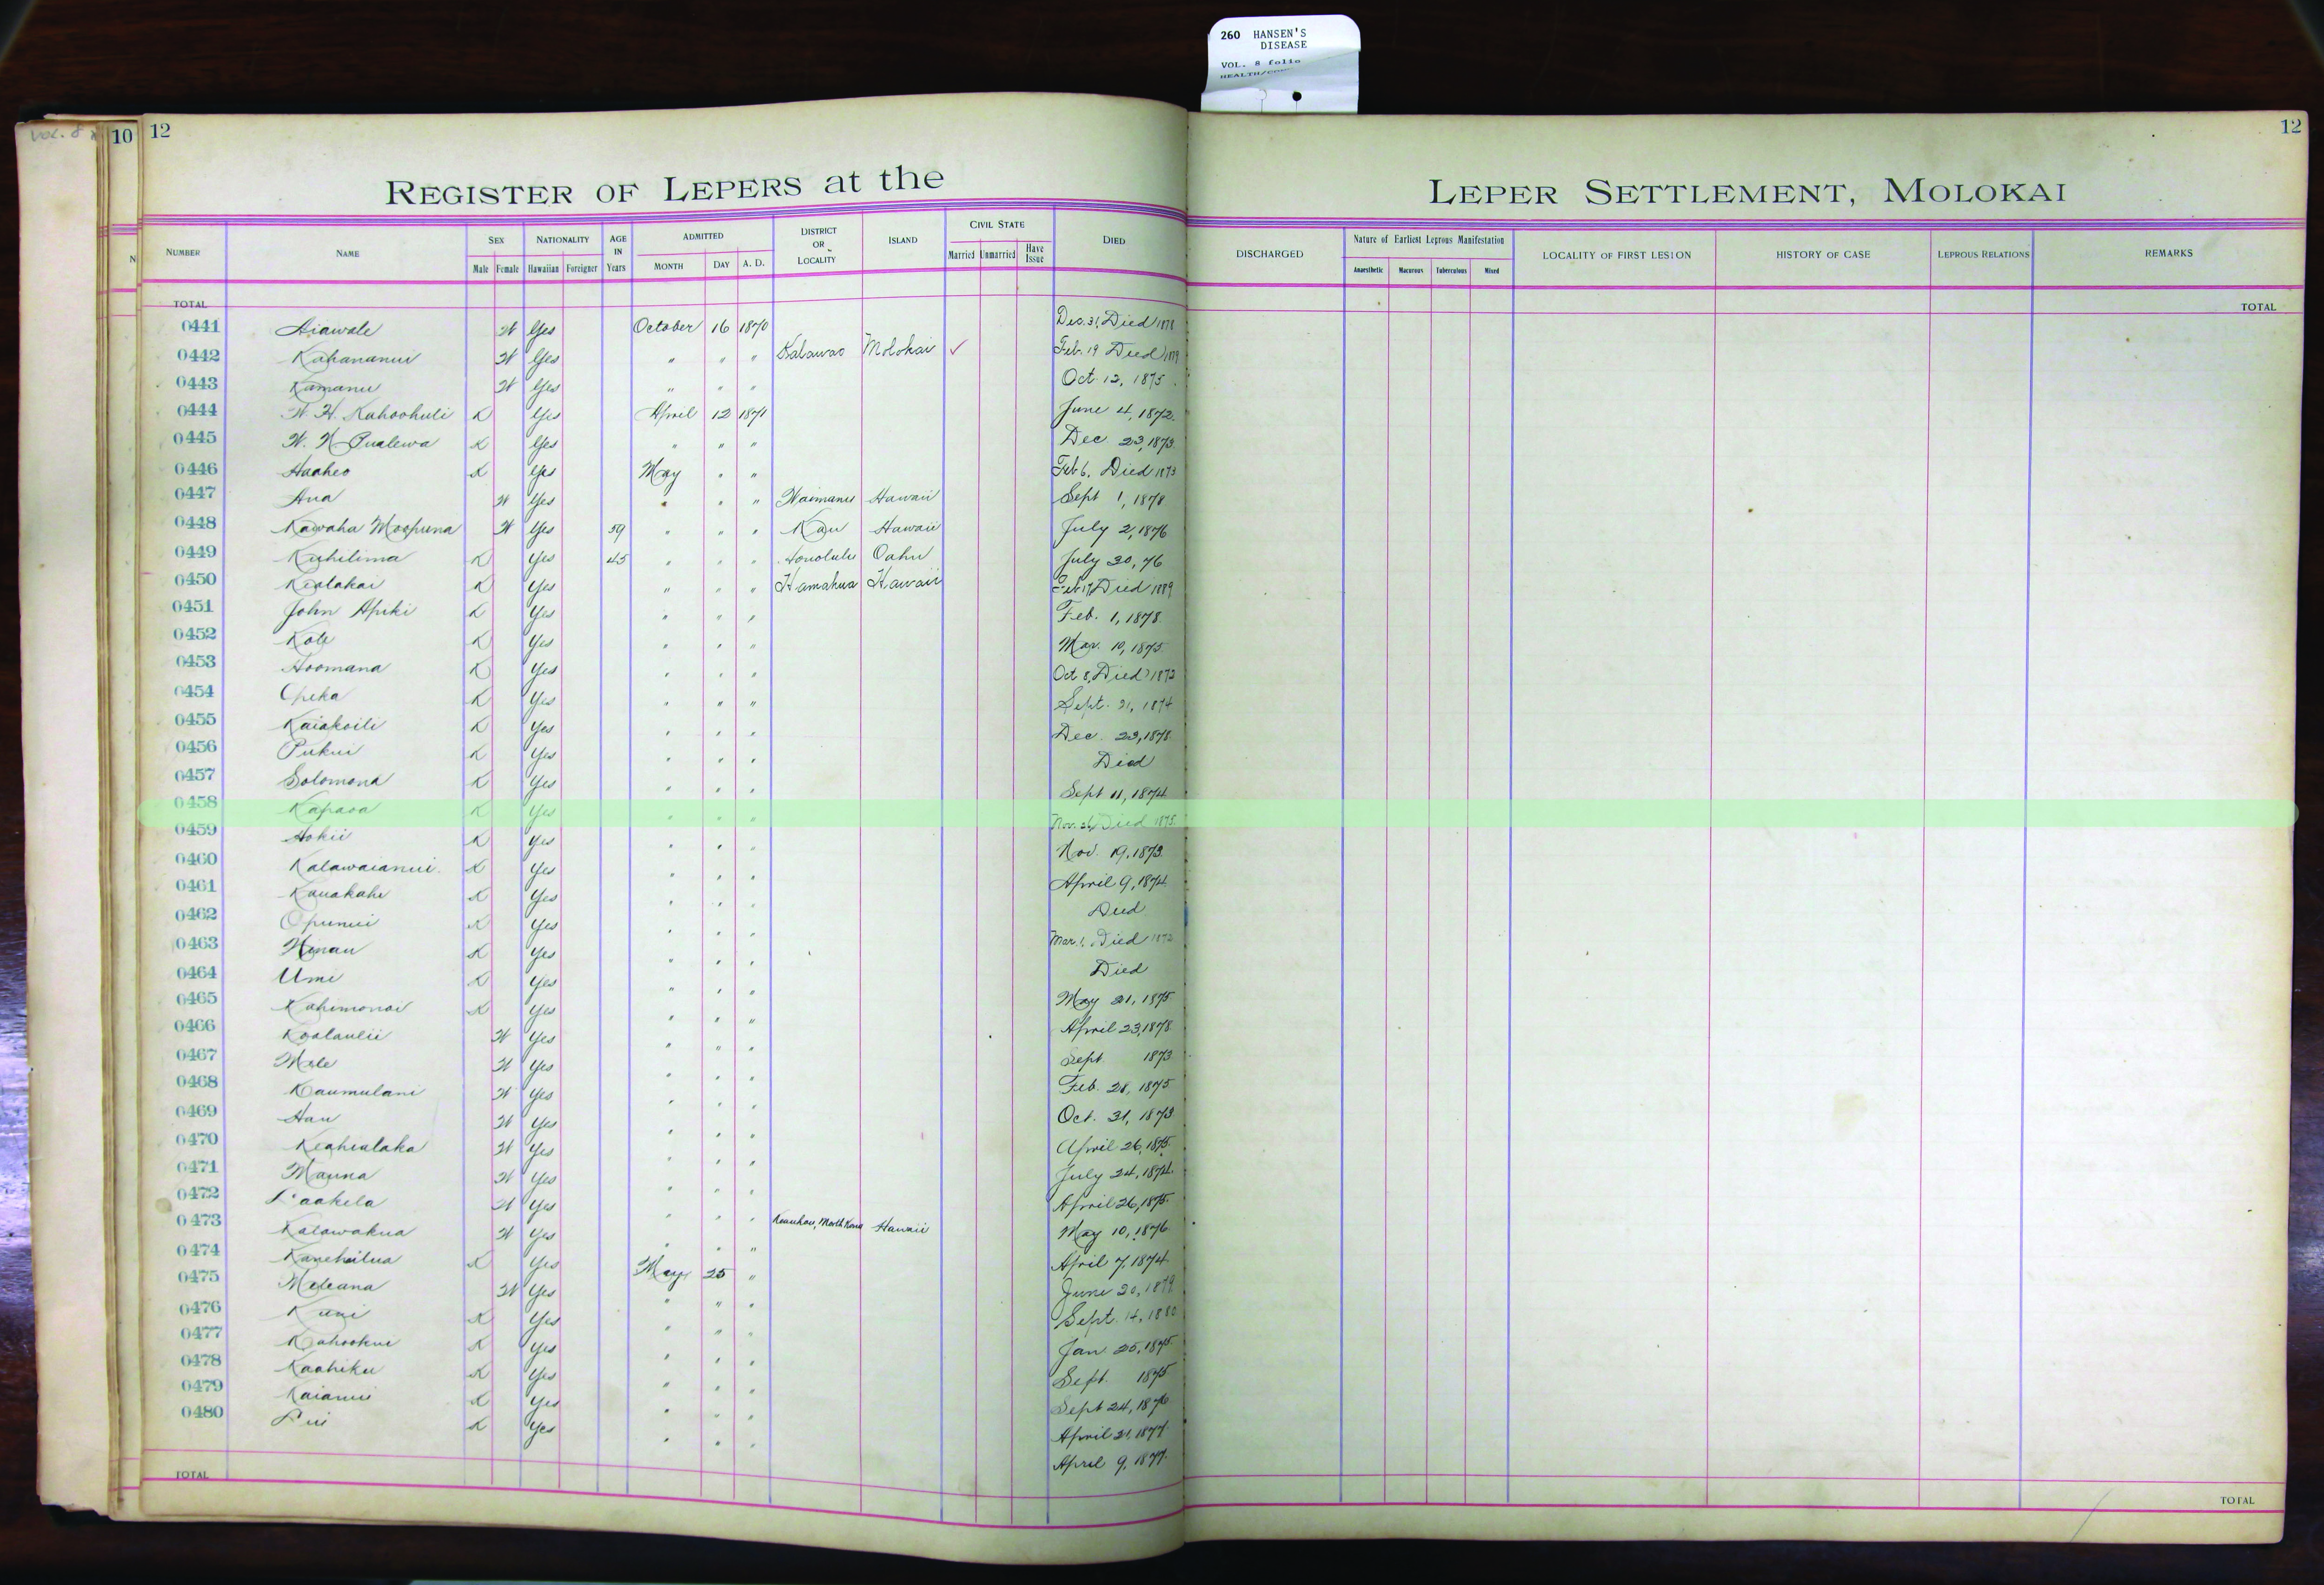 260 HANSEN'S
DISEASE
VOL. 8 folio
VOL. 8
10
12
12
REGISTER OF LEPERS at the LEPER SETTLEMENT, MOLOKAI
NUMBER NAME SEX Male Female NATIONALITY Hawaiian Foreigner AGE IN Years ADMITTED MONTH DAY A. D. DISTRICT OR LOCALITY ISLAND CIVIL STATE Married Unmarried Have Issue DIED DISCHARGED Nature of Earliest Leprous Manifestation Anaesthetic Macurous Tuberculous Mixed LOCALITY OF FIRST LESION HISTORY OF CASE LEPROUS RELATIONS REMARKS
TOTAL TOTAL
0441 Aiawale W Yes October 16 1870 Dec. 31, Died 1878
0442 Kahananui W Yes " " " Kalawao Molokai ✓ Feb. 19 Died
0443 Kamanu W Yes " " " Oct. 12, 1875
0444 W. H. Kahoohuli K Yes April 12 1871 June 4, 1872
0445 W. N. Pualewa K Yes " " " Dec. 23, 1873
0446 Haaheo K Yes May " " Feb 6, Died 1873
0447 Ana W Yes " " " Waimanu Hawaii Sept 1, 1878
0448 Kawaha Moopuna W Yes 59 " " " Kau Hawaii July 2, 1876
0449 Kuhilima K Yes 45 " " " Honolulu Oahu July 30, 76
0450 Kealakai K Yes " " " Hamakua Hawaii Feb 17, Died 1889
0451 John Apiki K Yes " " " Feb. 1, 1878
0452 Kole K Yes " " " Mar. 10, 1875
0453 Hoomana K Yes " " " Oct 8, Died 1873
0454 Opeka K Yes " " " Sept. 21, 1874
0455 Kaiakoili K Yes " " " Dec. 23, 1878
0456 Pukui K Yes " " " Died
0457 Solomona K Yes " " " Sept 11, 1874
0458 Kapaoa K Yes " " " Nov. 26, Died 1875
0459 Hokii K Yes " " " Nov. 19, 1873
0460 Kalawaianui K Yes " " " April 9, 1874
0461 Kauakahi K Yes " " " Died
0462 Opunui K Yes " " " Mar. 1, Died 1873
0463 Winau K Yes " " " Died
0464 Umi K Yes " " " May 21, 1875
0465 Kahimonoi K Yes " " " April 23, 1878
0466 Koolaulii W Yes " " " Sept 1873
0467 Mele W Yes " " " Feb. 28, 1875
0468 Kaumulani W Yes " " " Oct. 31, 1873
0469 Hau W Yes " " " April 26, 1875
0470 Keahialaka W Yes " " " July 24, 1874
0471 Mauna W Yes " " " April 26, 1875
0472 Laakela W Yes " " " Keauhou, North Kona Hawaii May 10, 1876
0473 Kalawakua W Yes " " " April 7, 1874
0474 Kanehailua K Yes May 25 " June 20, 1879
0475 Meleana W Yes " " " Sept. 14, 1880
0476 Kuni K Yes " " " Jan. 25, 1875
0477 Kahookui K Yes " " " Sept. 1875
0478 Kaahiku K Yes " " " Sept 24, 1876
0479 Kaianui K Yes " " " April 21, 1877
0480 Lui K Yes " " " April 9, 1877
TOTAL TOTAL